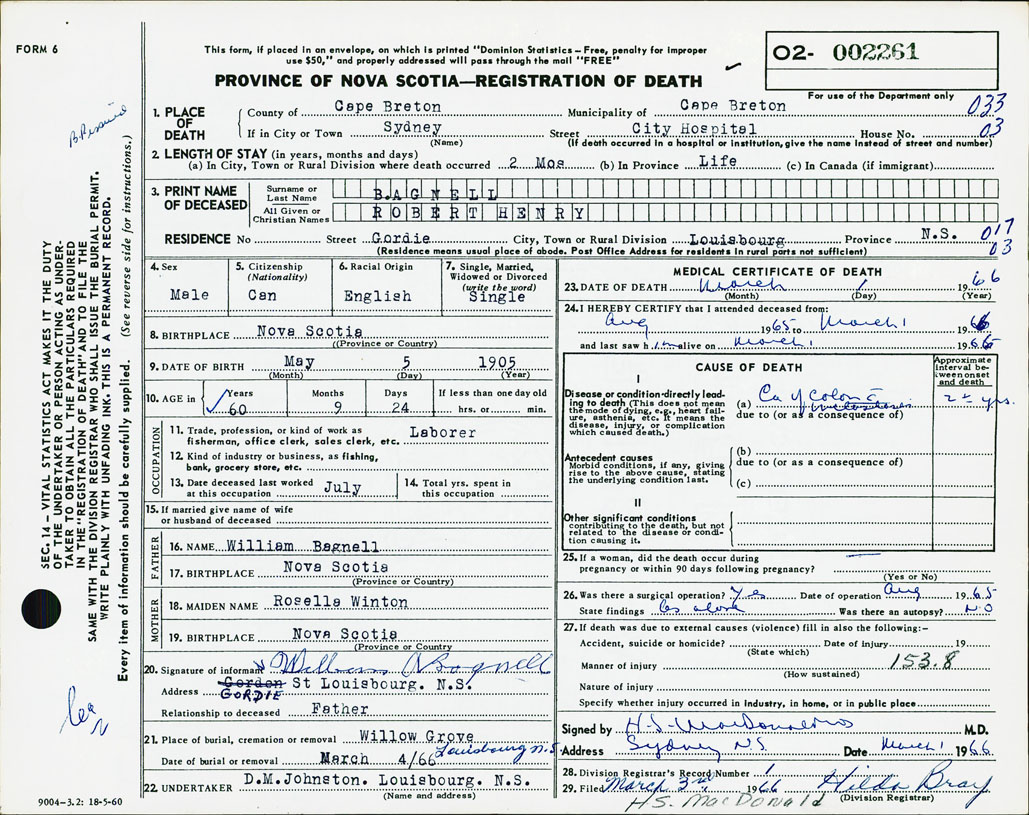 FORM 6
This form, if placed in an envelope, on which is printed "Dominion Statistics – Free, penalty for improper
use $50," and properly addressed will pass through the mail "FREE"
02- 002261
For use of the Department only
PROVINCE OF NOVA SCOTIA—REGISTRATION OF DEATH
SEC. 14 – VITAL STATISTICS ACT MAKES IT THE DUTY
OF THE UNDERTAKER OR PERSON ACTING AS UNDER-
TAKER TO OBTAIN ALL THE PARTICULARS REQUIRED
IN THE "REGISTRATION OF DEATH" AND TO FILE THE
SAME WITH THE DIVISION REGISTRAR WHO SHALL ISSUE THE BURIAL PERMIT.
WRITE PLAINLY WITH UNFADING INK. THIS IS A PERMANENT RECORD.
Every item of information should be carefully supplied. (See reverse side for instructions.)
1. PLACE OF DEATH
County of Cape Breton Municipality of Cape Breton 033
If in City or Town Sydney Street City Hospital House No. 03
(Name) (If death occurred in a hospital or institution, give the name instead of street and number)
2. LENGTH OF STAY (in years, months and days)
(a) In City, Town or Rural Division where death occurred 2 Mos (b) In Province Life (c) In Canada (if immigrant)
3. PRINT NAME OF DECEASED
Surname or Last Name BAGNELL
All Given or Christian Names ROBERT HENRY
RESIDENCE No Street Gordie City, Town or Rural Division Louisbourg Province N.S. 017
03
(Residence means usual place of abode. Post Office Address for residents in rural parts not sufficient)
4. Sex
Male
5. Citizenship
(Nationality)
Can
6. Racial Origin
English
7. Single, Married,
Widowed or Divorced
(write the word)
Single
8. BIRTHPLACE Nova Scotia
((Province or Country)
9. DATE OF BIRTH May 5 1905
(Month) (Day) (Year)
10. AGE in Years Months Days If less than one day old
60 9 24 hrs. or min.
OCCUPATION
11. Trade, profession, or kind of work as
fisherman, office clerk, sales clerk, etc. Laborer
12. Kind of industry or business, as fishing,
bank, grocery store, etc.
13. Date deceased last worked
at this occupation July
14. Total yrs. spent in
this occupation
15. If married give name of wife
or husband of deceased
FATHER
16. NAME William Bagnell
17. BIRTHPLACE Nova Scotia
(Province or Country)
MOTHER
18. MAIDEN NAME Rosella Winton
19. BIRTHPLACE Nova Scotia
(Province or Country)
20. Signature of informant William Bagnell
Address Gordon St Louisbourg. N.S.
GORDIE
Relationship to deceased Father
21. Place of burial, cremation or removal Willow Grove
Louisbourg N.S.
Date of burial or removal March 4/66
22. UNDERTAKER D.M.Johnston. Louisbourg. N.S.
(Name and address)
9004–3.2: 18-5-60
MEDICAL CERTIFICATE OF DEATH
23. DATE OF DEATH March 1 1966
(Month) (Day) (Year)
24. I HEREBY CERTIFY that I attended deceased from:
Aug 1965 to March 1 1966
and last saw him alive on March 1 1966
CAUSE OF DEATH
Approximate
interval be-
tween onset
and death
I
Disease or condition directly lead-
ing to death (This does not mean
the mode of dying, e.g., heart fail-
ure, asthenia, etc. It means the
disease, injury, or complication
which caused death.)
(a) Ca of Colon 2+ yrs.
due to (or as a consequence of)
Antecedent causes
Morbid conditions, if any, giving
rise to the above cause, stating
the underlying condition last.
(b)
due to (or as a consequence of)
(c)
II
Other significant conditions
contributing to the death, but not
related to the disease or condi-
tion causing it.
25. If a woman, did the death occur during
pregnancy or within 90 days following pregnancy?
(Yes or No)
26. Was there a surgical operation? Yes Date of operation Aug 1965
State findings as above Was there an autopsy? NO
27. If death was due to external causes (violence) fill in also the following:–
Accident, suicide or homicide? Date of injury 19
(State which)
Manner of injury 153.8
(How sustained)
Nature of injury
Specify whether injury occurred in industry, in home, or in public place
Signed by H.S. MacDonald M.D.
Address Sydney N.S. Date March 1 1966
28. Division Registrar's Record Number 1
29. Filed March 3rd 1966 Hilda Bray
(Division Registrar)
HS. MacDonald